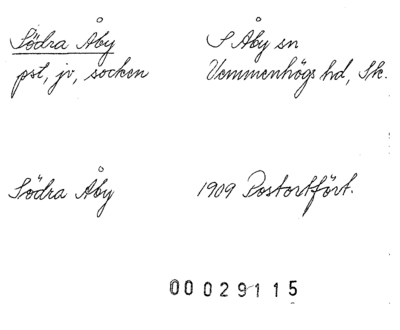 Södra Åby
S Åby sn
pst, jv, socken
Vemmenhögs hd, Sk.
Södra Åby
1909 Postortfört.
00029115